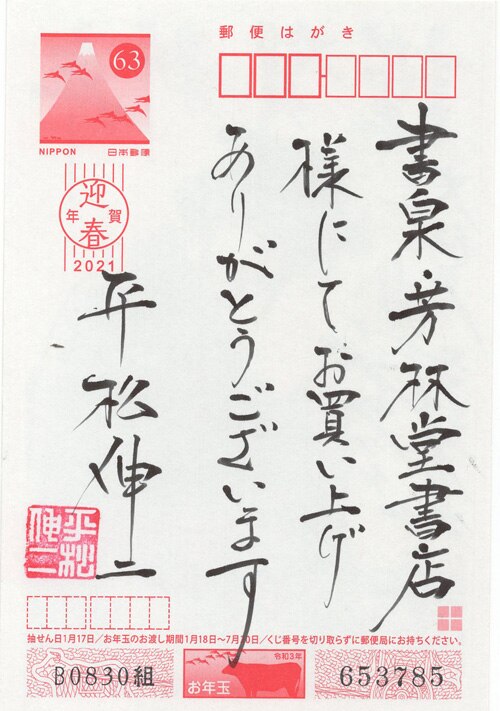 郵便はがき
63
NIPPON 日本郵便
迎春
年賀
2021
書泉・芳林堂書店
様にてお買い上げ
ありがとうございます
平松伸二
平松
伸二
抽せん日1月17日/お年玉のお渡し期間1月18日〜7月20日/くじ番号を切り取らずに郵便局にお持ちください。
B0830組
令和3年
お年玉
653785